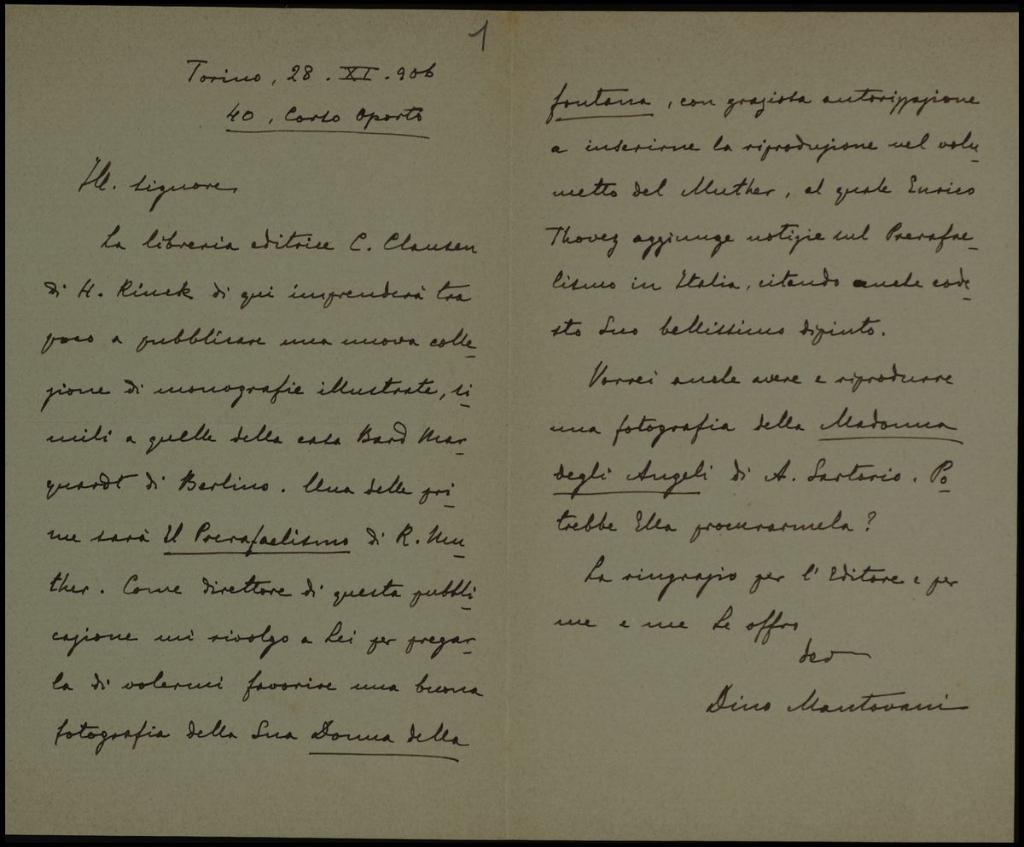 1
Torino, 28. XI. 906
40, Corso Oporto
Ill. signore,
La libreria editrice C. Clausen
di H. Rinck di qui imprenderà tra
poco a pubblicare una nuova colle-
zione di monografie illustrate, si-
mili a quelle della casa Bard Mar-
quardt di Berlino. Una delle pri-
me sarà Il Prerafaelismo di R. Mu-
ther. Come direttore di questa pubbli-
cazione mi rivolgo a Lei per pregar-
la di volermi favorire una buona
fotografia della Sua Donna della
fontana, con graziosa autorizzazione
a inserirne la riproduzione nel volu-
metto del Muther, al quale Enrico
Thovez aggiunge notizie sul Prerafae-
lismo in Italia, citando anche code-
sto Suo bellissimo dipinto.
Vorrei anche avere e riprodurre
una fotografia della Madonna
degli Angeli di A. Sartorio. Po-
trebbe Ella procurarmela?
La ringrazio per l'Editore e per
me e me Le offro
dev
Dino Mantovani